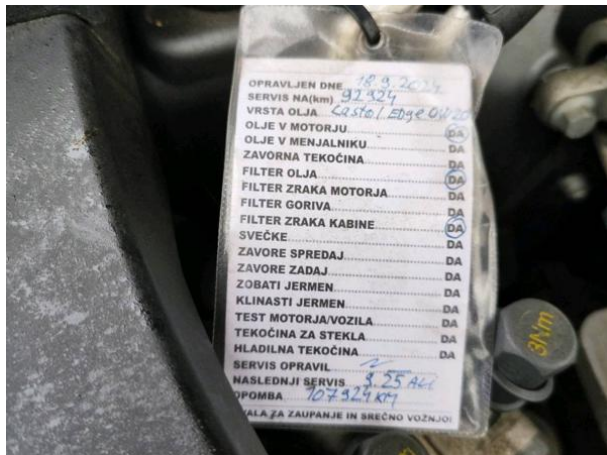 OPRAVLJEN DNE 18.9.2024
SERVIS NA(km) 92924
VRSTA OLJA Castol Edge 0W20
OLJE V MOTORJU DA
OLJE V MENJALNIKU DA
ZAVORNA TEKOČINA DA
FILTER OLJA DA
FILTER ZRAKA MOTORJA DA
FILTER GORIVA DA
FILTER ZRAKA KABINE DA
SVEČKE DA
ZAVORE SPREDAJ DA
ZAVORE ZADAJ DA
ZOBATI JERMEN DA
KLINASTI JERMEN DA
TEST MOTORJA/VOZILA DA
TEKOČINA ZA STEKLA DA
HLADILNA TEKOČINA DA
SERVIS OPRAVIL
NASLEDNJI SERVIS 9.25 ALI
OPOMBA 107924 KM
HVALA ZA ZAUPANJE IN SREČNO VOŽNJO!
3Nm